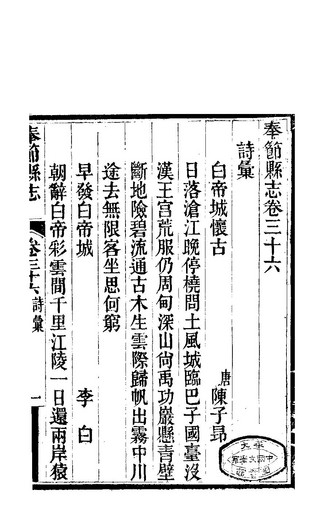 奉節縣志卷三十六
詩彙
白帝城懷古
唐 陳子昂
日落滄江晚停橈問土風城臨巴子國臺沒
漢王宮荒服仍周甸深山尚禹功巖懸青壁
斷地險碧流通古木生雲際歸帆出霧中川
途去無限客坐思何窮
早發白帝城
李白
朝辭白帝彩雲間千里江陵一日還兩岸猿
奉節縣志
卷三十六 詩彙
一